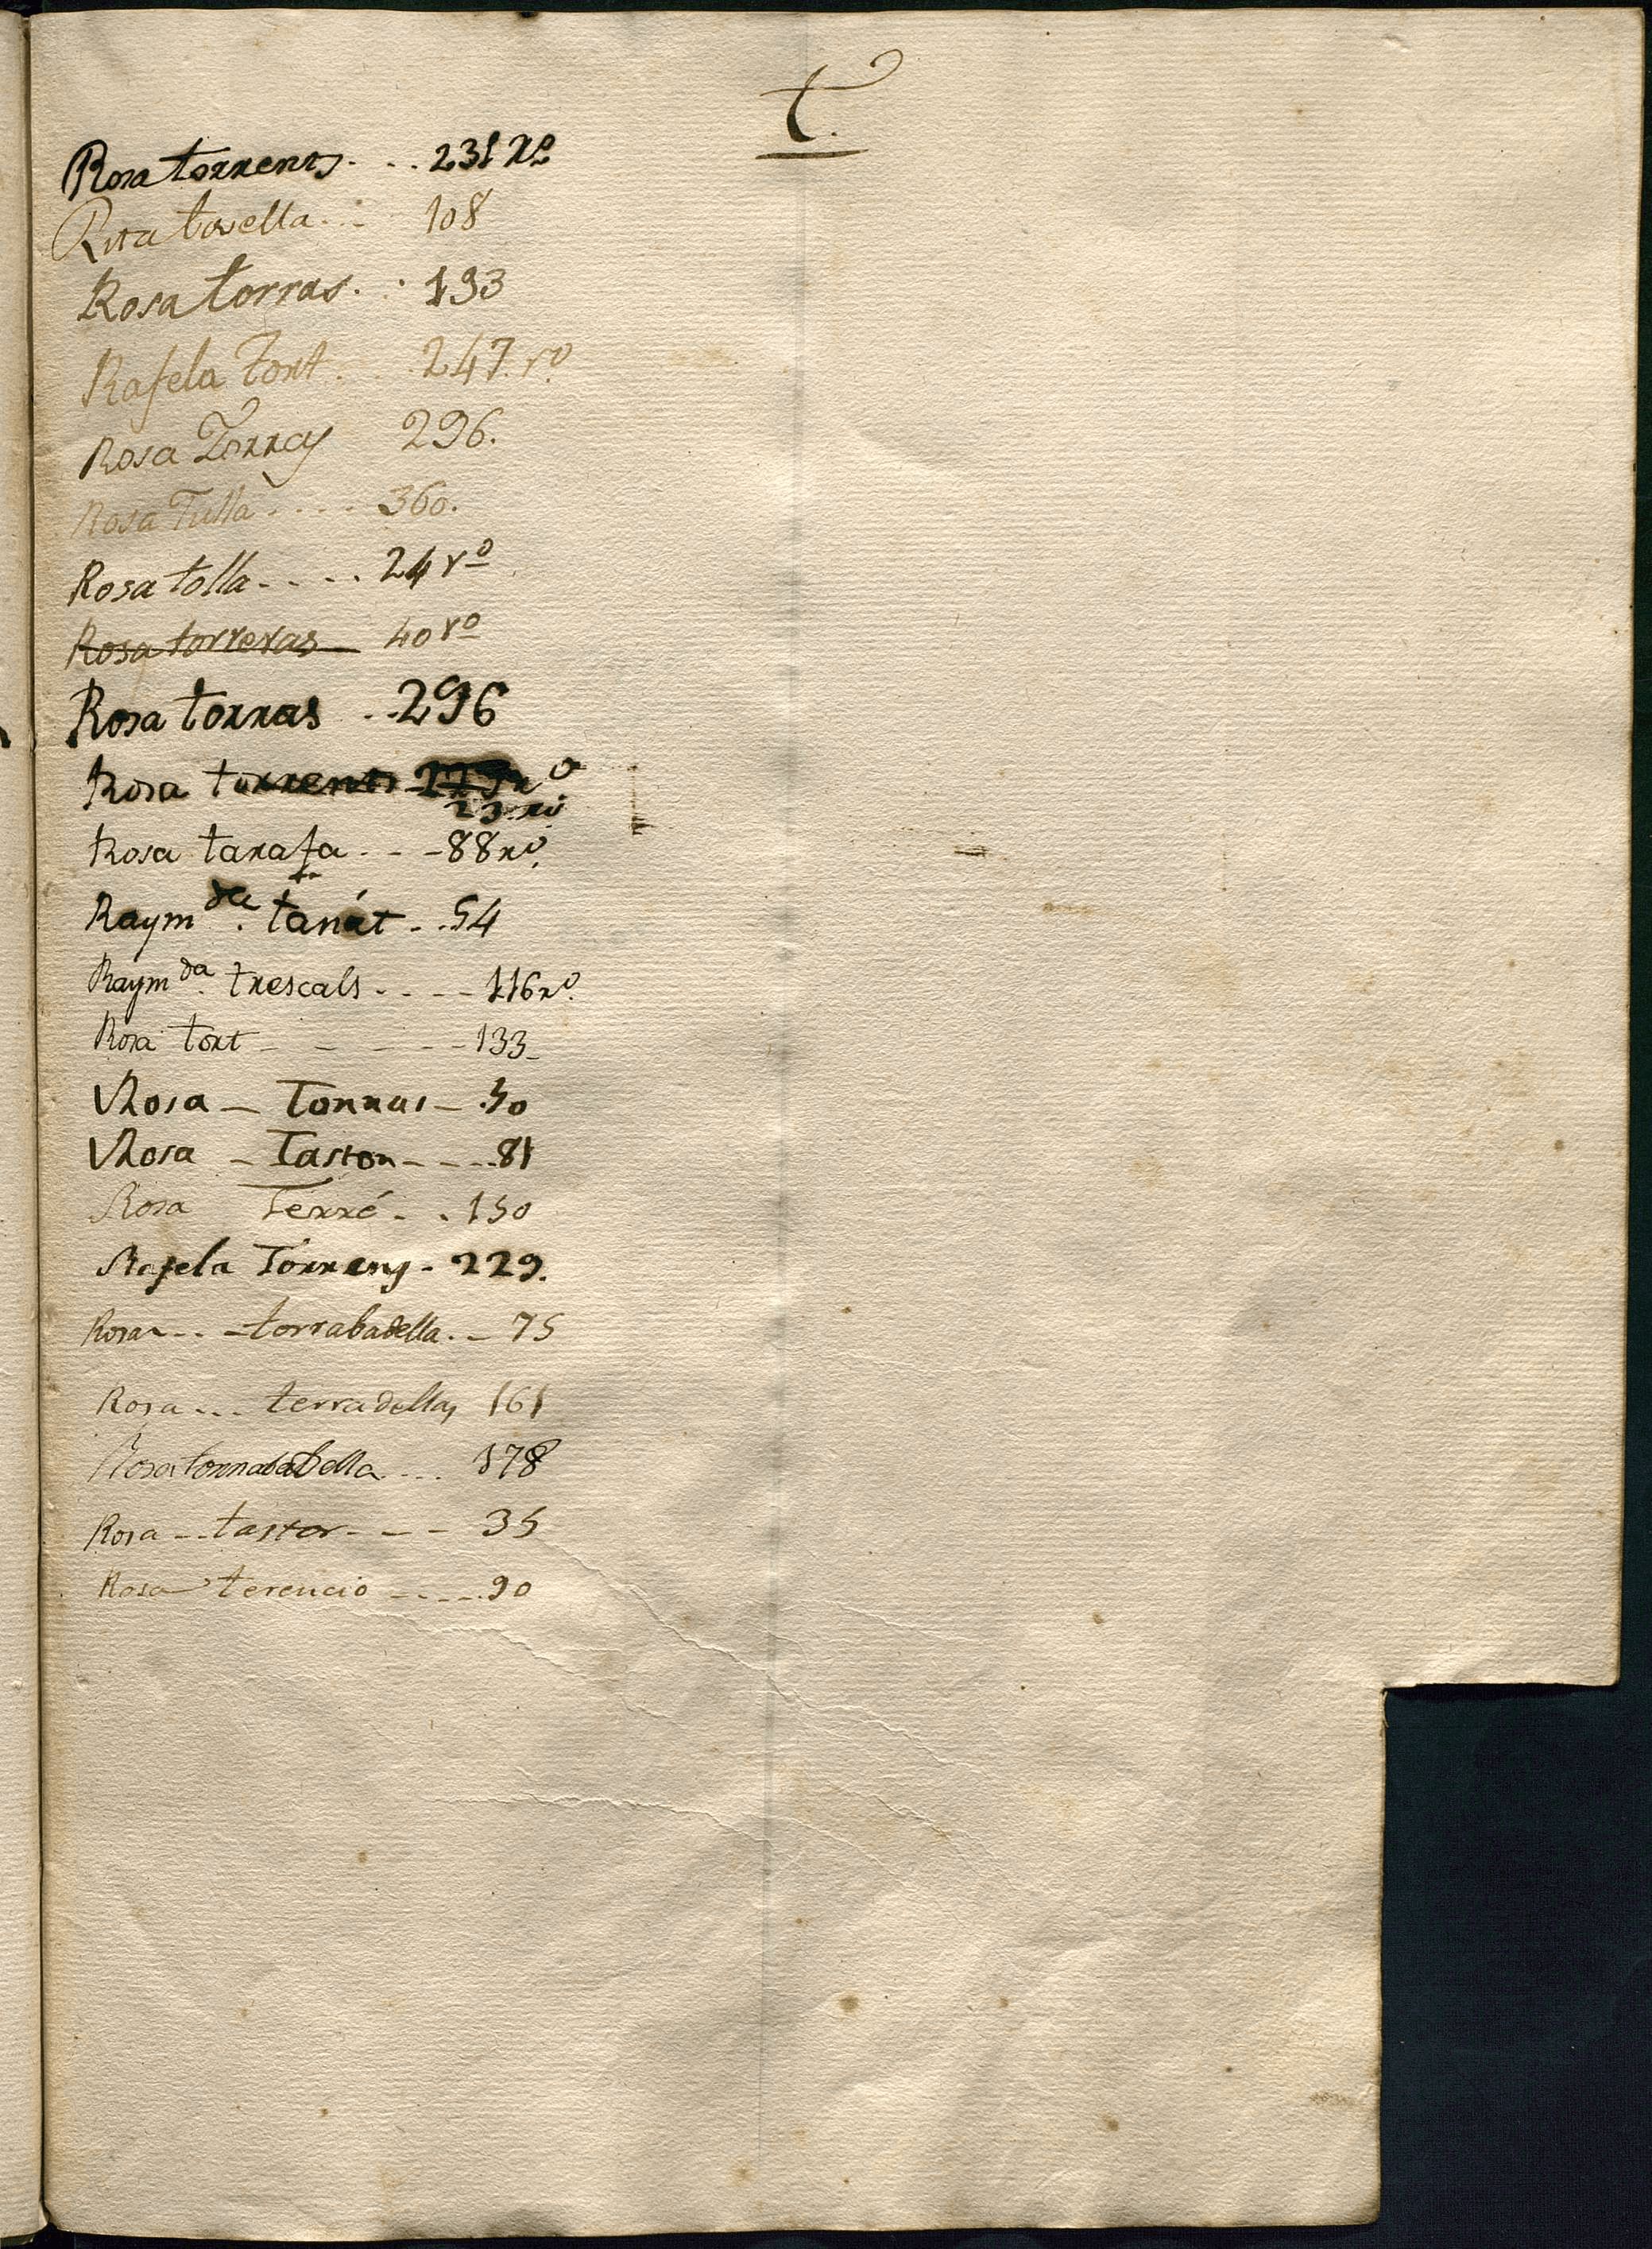 t.
Rosa torrents. . . 231 rº
Rita tovella. . . 108
Rosa torras. . . 193
Rafela Tort. . . 247. rº
Rosa Torras 296.
Rosa Tulla . . . . 360.
Rosa tolla. . . . . 24 rº
Rosa torreras 40 rº
Rosa torras . . 296
Rosa torrents
23. rº
Rosa tarafa . . . 88 rº.
Raymda. tarát . . 54
Raymda. trescals . . . . 116 rº.
Rosa tort - - - - - 133
Rosa - Torras - 50
Rosa - Tastor - - - - 81
Rosa Terré . . 150
Rafela Torrens - 229.
Rosa . . . torrabadella . . 75
Rosa . . . terradellas 161
Rosa torrabadella . . . 178
Rosa - - tastor - - - 35
Rosa terencio - - - - . 90